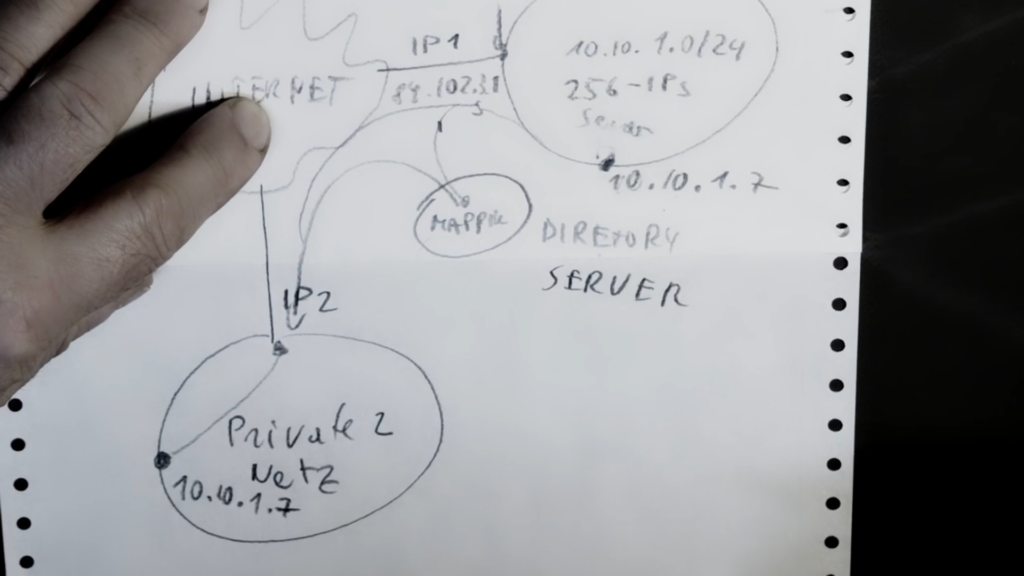 IP1
10.10.1.0/24
INTERNET
256-IPs
10.10.1.7
DIRETORY
SERVER
IP2
Private 2
Netz
10.10.1.7